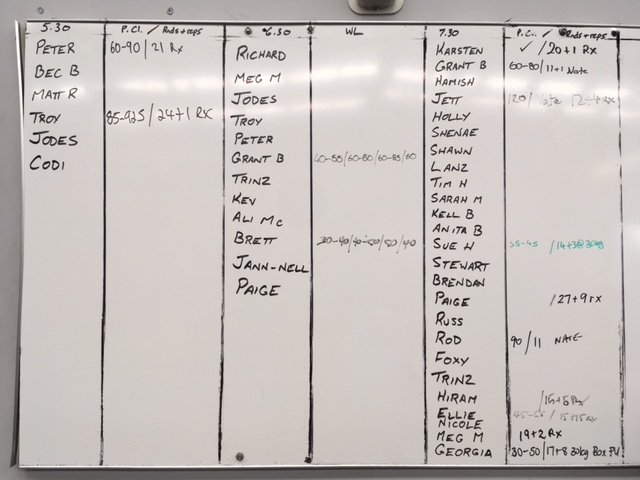 5.30 P.Cl. / Rnds+reps
PETER 60-90/21 Rx
BEC B
MATT R
TROY 85-92.5/24+1 Rx
JODES
CODI
6.30 WL
RICHARD
MEG M
JODES
TROY
PETER
GRANT B 40-55/60-80/60-85/60
TRINZ
KEV
ALI Mc
BRETT 30-40/40-50/50/40
JANN-NELL
PAIGE
7.30 P.C. / Rnds+reps
KARSTEN ✓ /20+1 Rx
GRANT B 60-80/11+1 Nate
HAMISH
JETT 120/
HOLLY
SHENAE
SHAWN
LANZ
TIM H
SARAH M
KELL B
ANITA B
SUE H 35-45 /14+3@30kg
STEWART
BRENDAN
PAIGE /27+9 rx
RUSS
ROD 90/11 NATE
FOXY
TRINZ
HIRAM
ELLIE 45-55 /
NICOLE
MEG M 19+2 Rx
GEORGIA 30-50/17+8 30kg Box PU